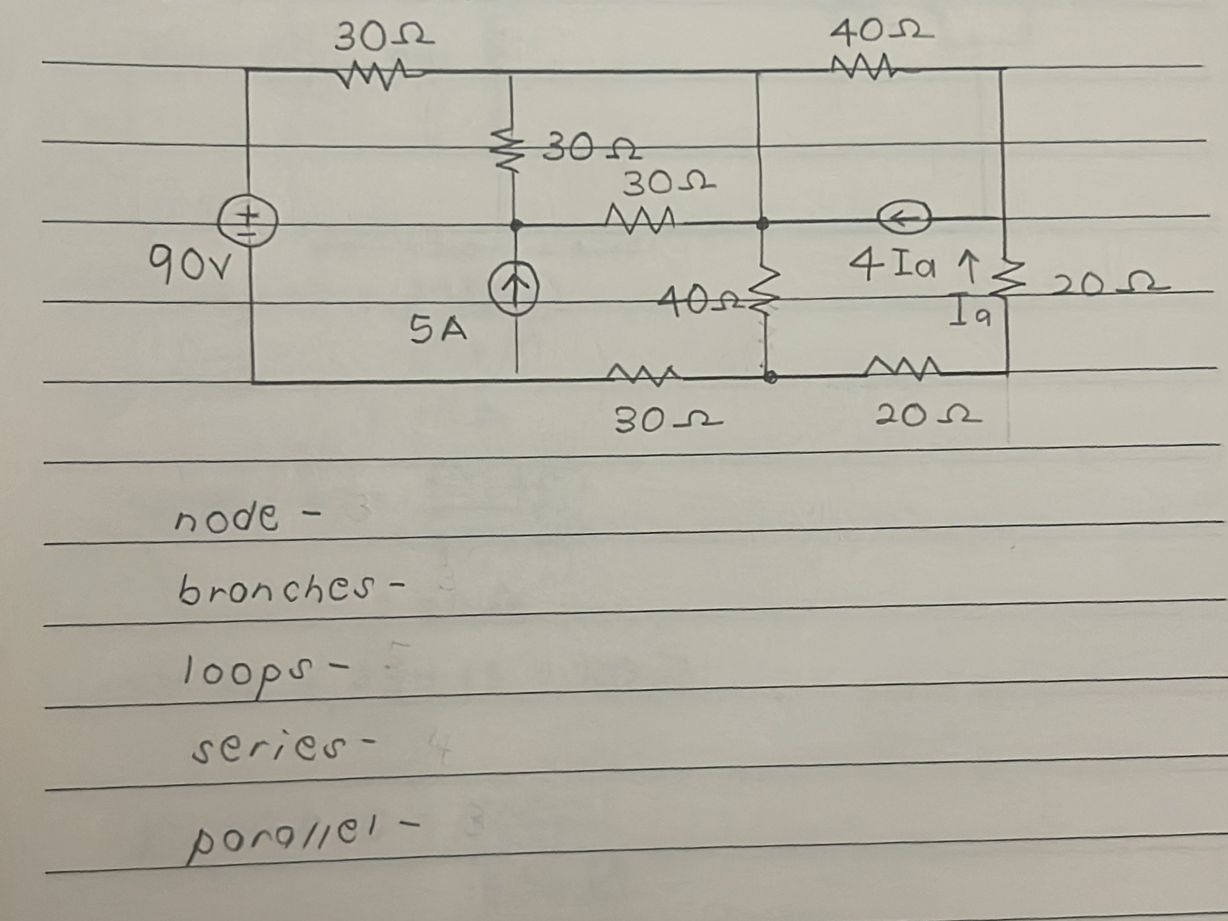 30Ω 40Ω
30Ω
30Ω
90v
4Ia 20Ω
40Ω Ia
5A
30Ω 20Ω
node -
bronches -
loops -
series - 4
parallel - 3